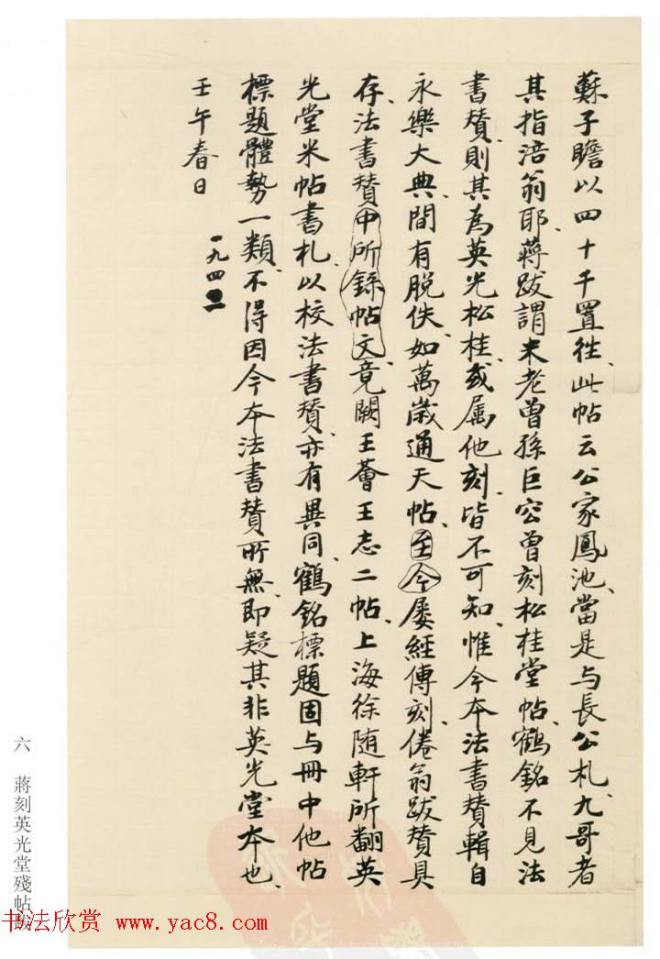 蘇子瞻以四十千置往、此帖云公家鳳池、當是与長公札、九哥者
其指涪翁耶、蔣跋謂米老曾孫巨容曾刻松桂堂帖、鶴銘不見法
書贊、則其為英光松桂、或属他刻、皆不可知、惟今本法書贊輯自
永樂大典、間有脱佚、如萬歲通天帖、至今屡經傳刻、倦翁跋贊具
存、法書贊中所錄帖文、竟闕王薈王志二帖、上海徐随軒所翻英
光堂米帖書札、以校法書贊、亦有異同、鶴銘標題固与冊中他帖
標題體勢一類、不得因今本法書贊所無、即疑其非英光堂本也、
壬午春日
一九四二
六 蔣刻英光堂殘帖跋
书法欣赏 www.yac8.com